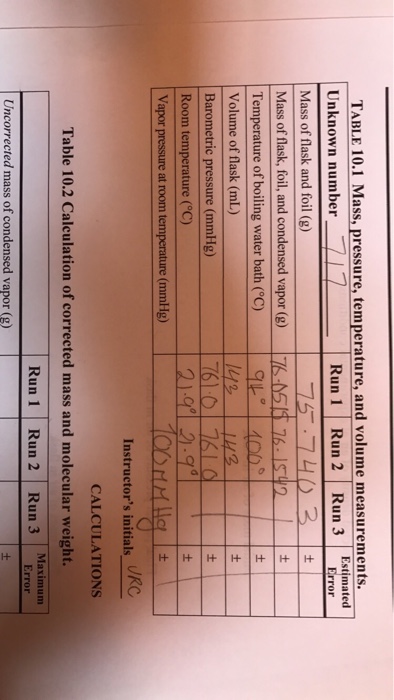 TABLE 10.1 Mass, pressure, temperature, and volume measurements.
Unknown number 717 Run 1 Run 2 Run 3 Estimated Error
Mass of flask and foil (g) 75.7403 ±
Mass of flask, foil, and condensed vapor (g) 76.0515 76.1542 ±
Temperature of boiling water bath (°C) 94° 100° ±
Volume of flask (mL) 143 143 ±
Barometric pressure (mmHg) 761.0 761.0 ±
Room temperature (°C) 21.9° 21.9° ±
Vapor pressure at room temperature (mmHg) 100 MMHg ±
Instructor's initials JRC
CALCULATIONS
Table 10.2 Calculation of corrected mass and molecular weight.
Run 1 Run 2 Run 3 Maximum Error
Uncorrected mass of condensed vapor (g) ±